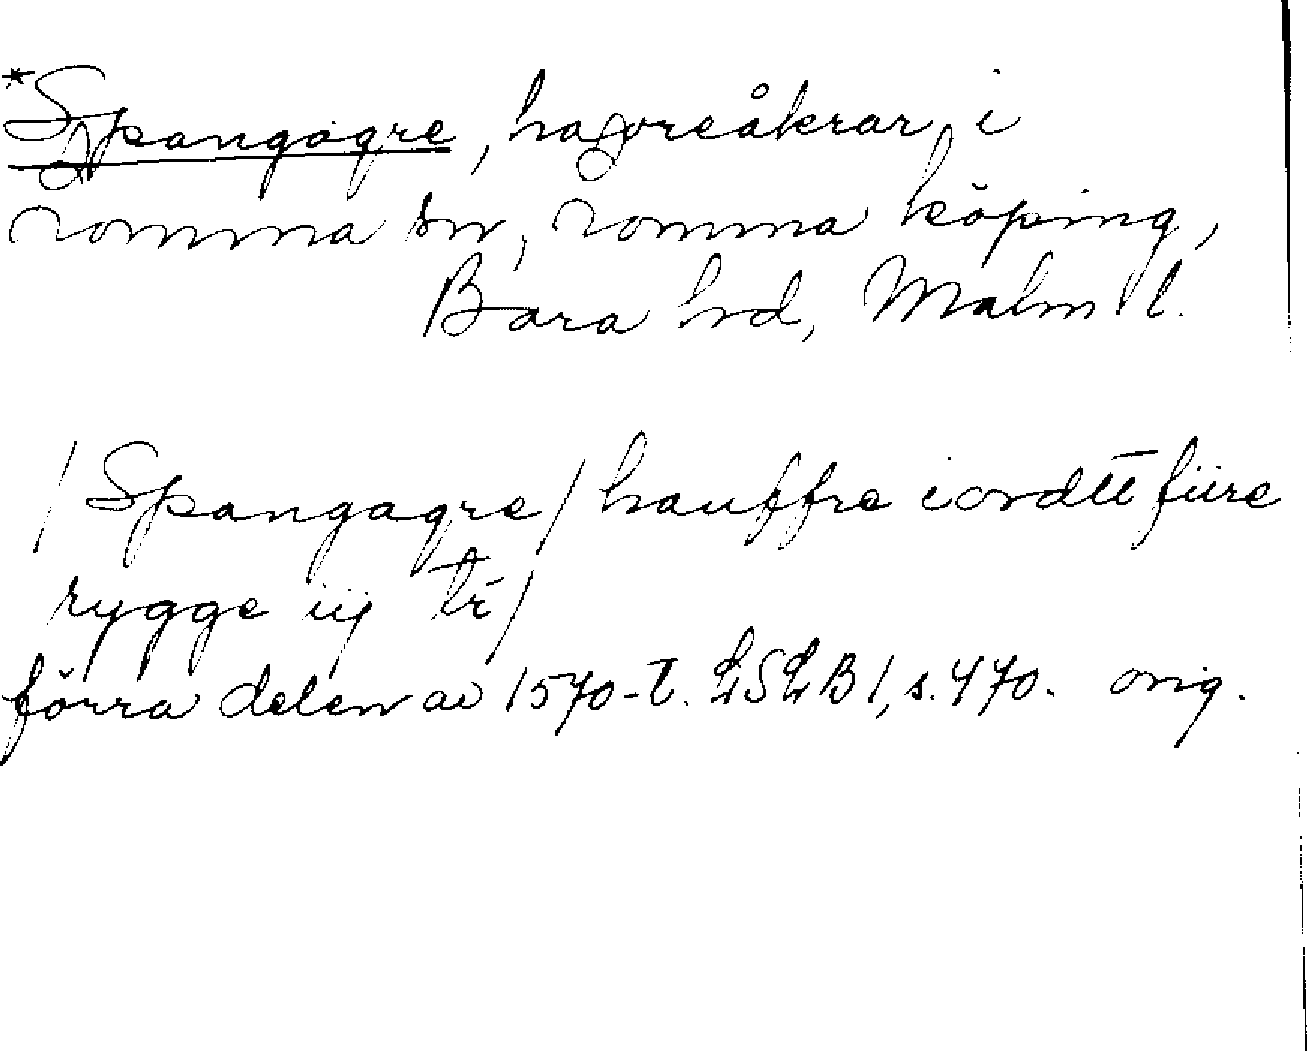 *Spangagre, havreåkrar, i
Lomma sn, Lomma köping,
Bara hd, Malm l.
/ Spangagre / hauffre iordtt fiire
rygge iij tr /
förra delen av 1570-t. LSLB I, s. 470. orig.